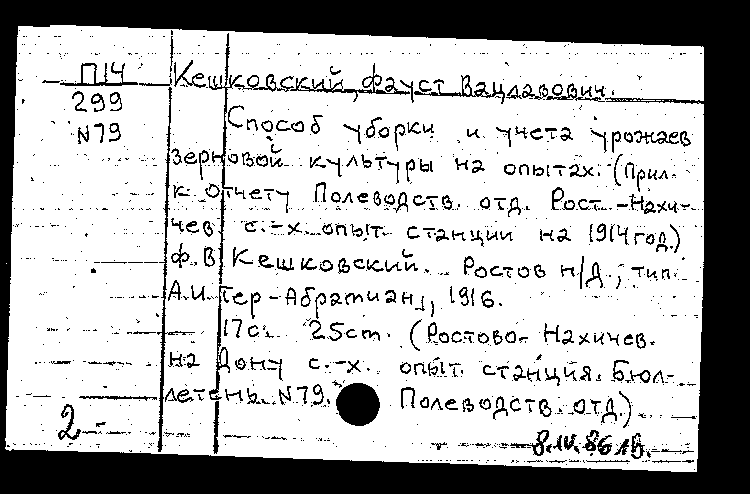 П14
299
N79
Кешковский, Фауст Вацлавович.
Способ уборки и учета урожаев
зерновой культуры на опытах. (Прил.
к отчету Полеводств. отд. Рост.-Нахи-
чев. с.-х. опыт. станции на 1914 год.)
Ф.В. Кешковский. Ростов н/Д., тип.
А.И. Тер-Абрамиан, 1916.
17с. 25cm. (Ростово-Нахичев.
на Дону с.-х. опыт. станция. Бюл-
летень. N79. Полеводств. отд.)
2-